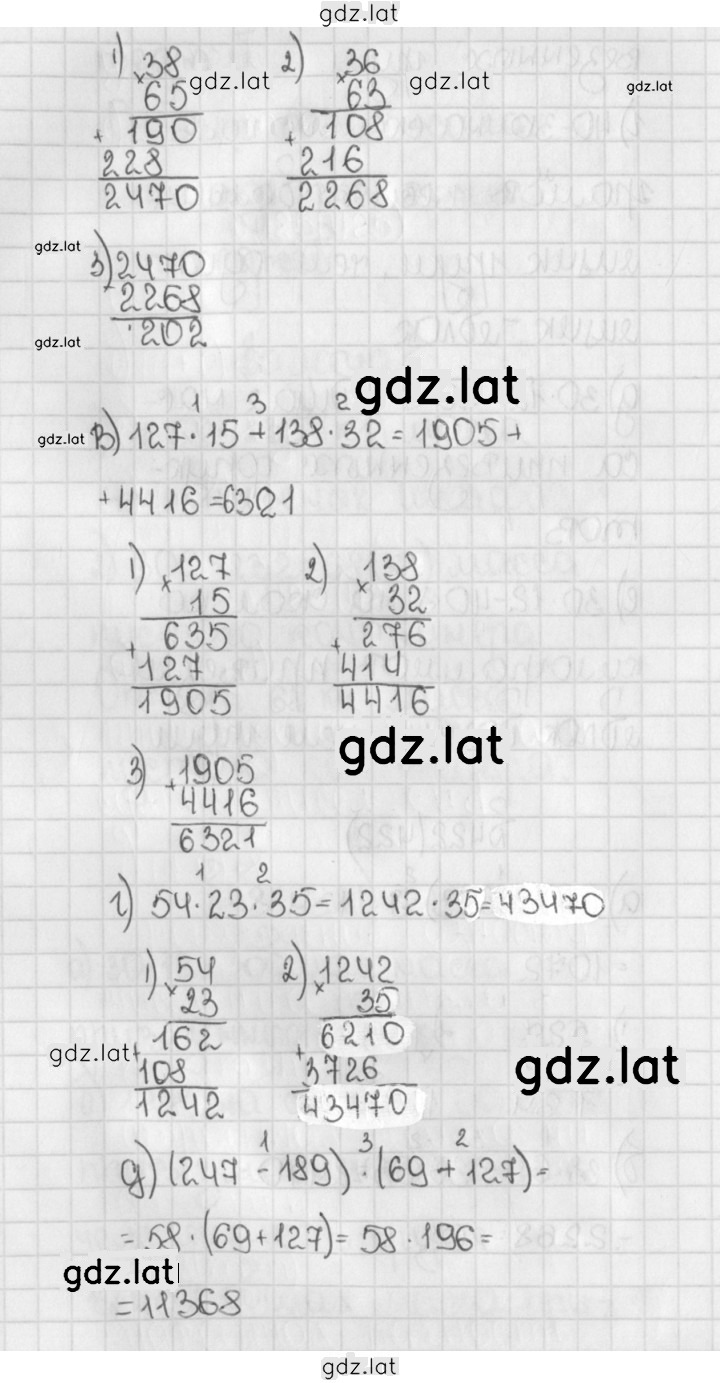 gdz.lat
1) 38 2) 36
× 65 gdz.lat × 63 gdz.lat gdz.lat
+ 190 + 108
228 216
2470 2268
gdz.lat
3) 2470
- 2268
gdz.lat 202
gdz.lat
1 3 2
gdz.lat в) 127·15+138·32=1905+
+4416=6321
1) ×127 2) ×138
15 32
+ 635 + 276
127 414
1905 4416
gdz.lat
3) +1905
4416
6321
1 2
г) 54·23·35=1242·35=43470
1) ×54 2) ×1242
23 35
162 6210
gdz.lat + 108 + 3726 gdz.lat
1242 43470
1 3 2
д) (247-189)·(69+127)=
=58·(69+127)=58·196=
gdz.lat
=11368
gdz.lat